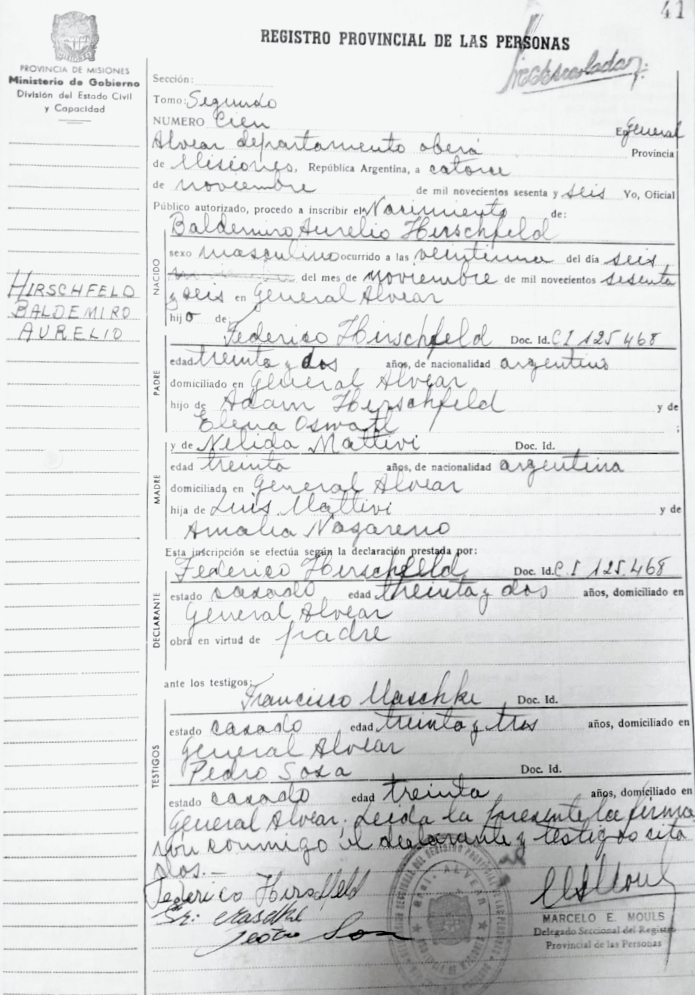 41
REGISTRO PROVINCIAL DE LAS PERSONAS
PROVINCIA DE MISIONES
Ministerio de Gobierno
División del Estado Civil
y Capacidad
Sección:
Tomo: Segundo
NUMERO Cien
En General
Alvear departamento oberá
Provincia
de Misiones, República Argentina, a catorce
de noviembre de mil novecientos sesenta y seis Yo, Oficial
Público autorizado, procedo a inscribir el Nacimiento de:
Baldemiro Aurelio Hirschfeld
NACIDO
sexo masculino ocurrido a las veintiuna del día seis
del mes de noviembre de mil novecientos sesenta
y seis en General Alvear
hijo de:
HIRSCHFELD
BALDEMIRO
AURELIO
Federico Hirschfeld Doc. Id. C.I 125.468
PADRE
edad treinta y dos años, de nacionalidad argentino
domiciliado en General Alvear
hijo de Adam Hirschfeld y de
Elena
y de Nelida Mattivi Doc. Id.
MADRE
edad treinta años, de nacionalidad argentina
domiciliada en General Alvear
hija de Luis Mattivi y de
Amalia Nazareno
Esta inscripción se efectúa según la declaración prestada por:
Federico Hirschfeld Doc. Id. C.I 125.468
DECLARANTE
estado casado edad treinta y dos años, domiciliado en
General Alvear
obra en virtud de padre
ante los testigos:
Francisco Maschke Doc. Id.
TESTIGOS
estado casado edad treinta y tres años, domiciliado en
General Alvear
Pedro Sosa Doc. Id.
estado casado edad treinta años, domiciliado en
General Alvear; Leida la presente la firma
con conmigo el declarante y testigos cita
dos.-
Federico Hirschfeld
Fr: Maschke
Pedro Sosa
MARCELO E. MOULS
Delegado Seccional del Registro
Provincial de las Personas